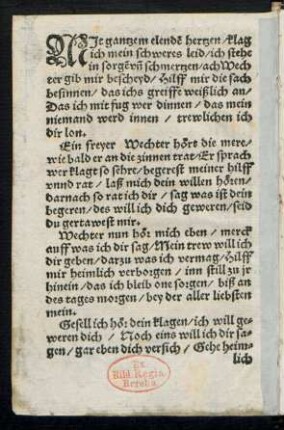 MIt gantzem elendē hertzen / klag
ich mein schweres leid / ich stehe
in sorgē vn̄ schmertzen / ach Wech
ter gib mir bescheyd / Hilff mir die sach
besinnen / das ichs greiffe weißlich an /
Das ich mit fug wer dinnen / das mein
niemand werd innen / trewlichen ich
dir lon.
Ein freyer Wechter hört die mere /
wie bald er an die zinnen trat / Er sprach
wer klagt so sehre / begerest meiner hilff
vnnd rat / laß mich dein willen hören /
darnach so rat ich dir / sag was ist dein
begeren / des will ich dich geweren / seid
du gertawest mir.
Wechter nun hör mich eben / merck
auff was ich dir sag / Mein trew will ich
dir geben / darzu was ich vermag / Hilff
mir heimlich verborgen / inn still zu jr
hinein / das ich bleib one sorgen / biß an
des tages morgen / bey der aller liebsten
mein.
Gesell ich hör dein klagen / ich will ge-
weren dich / Noch eins will ich dir sa-
gen / gar eben dich versich / Gehe heim-
lich
Ex
Bibl. Regia
Berolin.